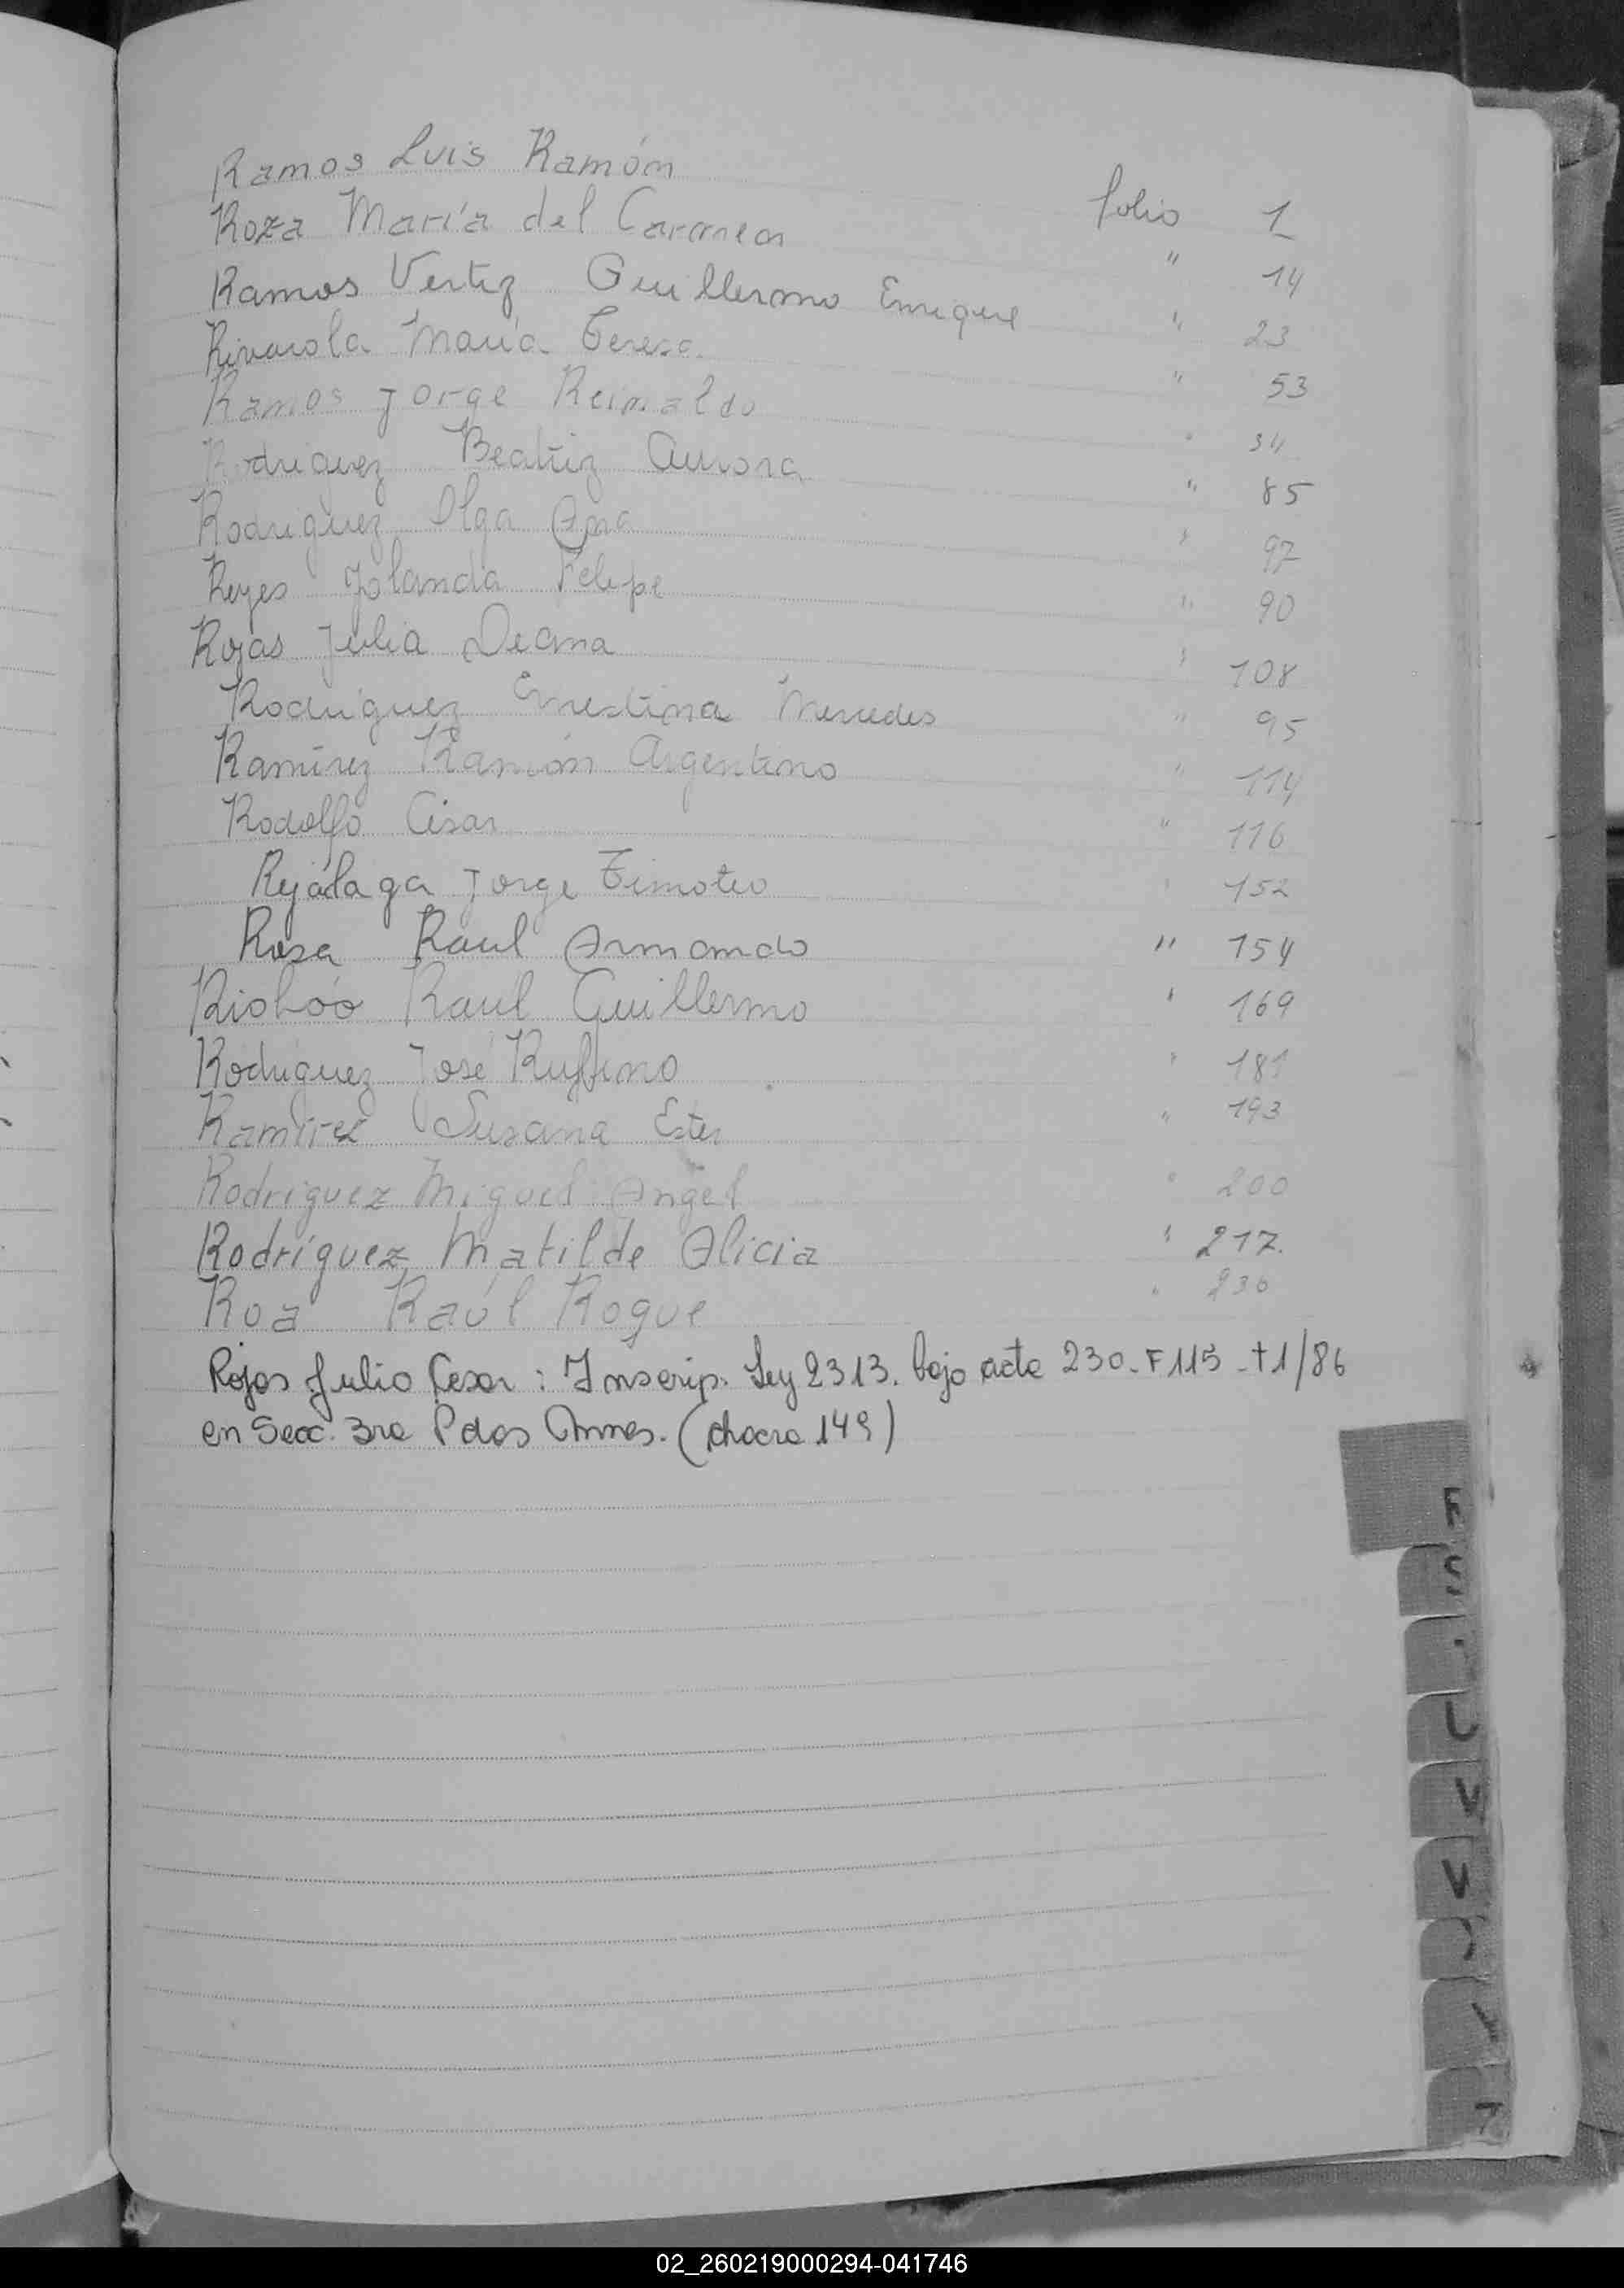 Ramos Luis Ramón folio 1
Roza María del Carmen " 14
Ramos Vertiz Guillermo Enrique " 23
Rivarola María Teresa. " 53
Ramos Jorge Reinaldo " 34
Rodriguez Beatriz Aurora " 85
Rodriguez Olga Ana " 97
Reyes Yolanda Felipe " 90
Rojas Julia Deana " 108
Rodriguez Ernestina Mercedes " 95
Ramírez Ramón Argentino " 114
Rodolfo Cesar " 116
Rejálaga Jorge Timoteo " 152
Rosa Raul Armando " 154
Riohóo Raúl Guillermo " 169
Rodriguez José Rufino " 181
Ramirez Susana Ester " 193
Rodriguez Miguel Angel " 200
Rodríguez Matilde Alicia " 217.
Roa Raúl Roque " 230
Rojas Julio Cesar : Inscrip. Ley 2313. bajo acta 230_F115_t1/86
en Secc. 3ra Pdas Annes. (chacra 149)
R
S
U
V
V
Y
Z
02_260219000294-041746